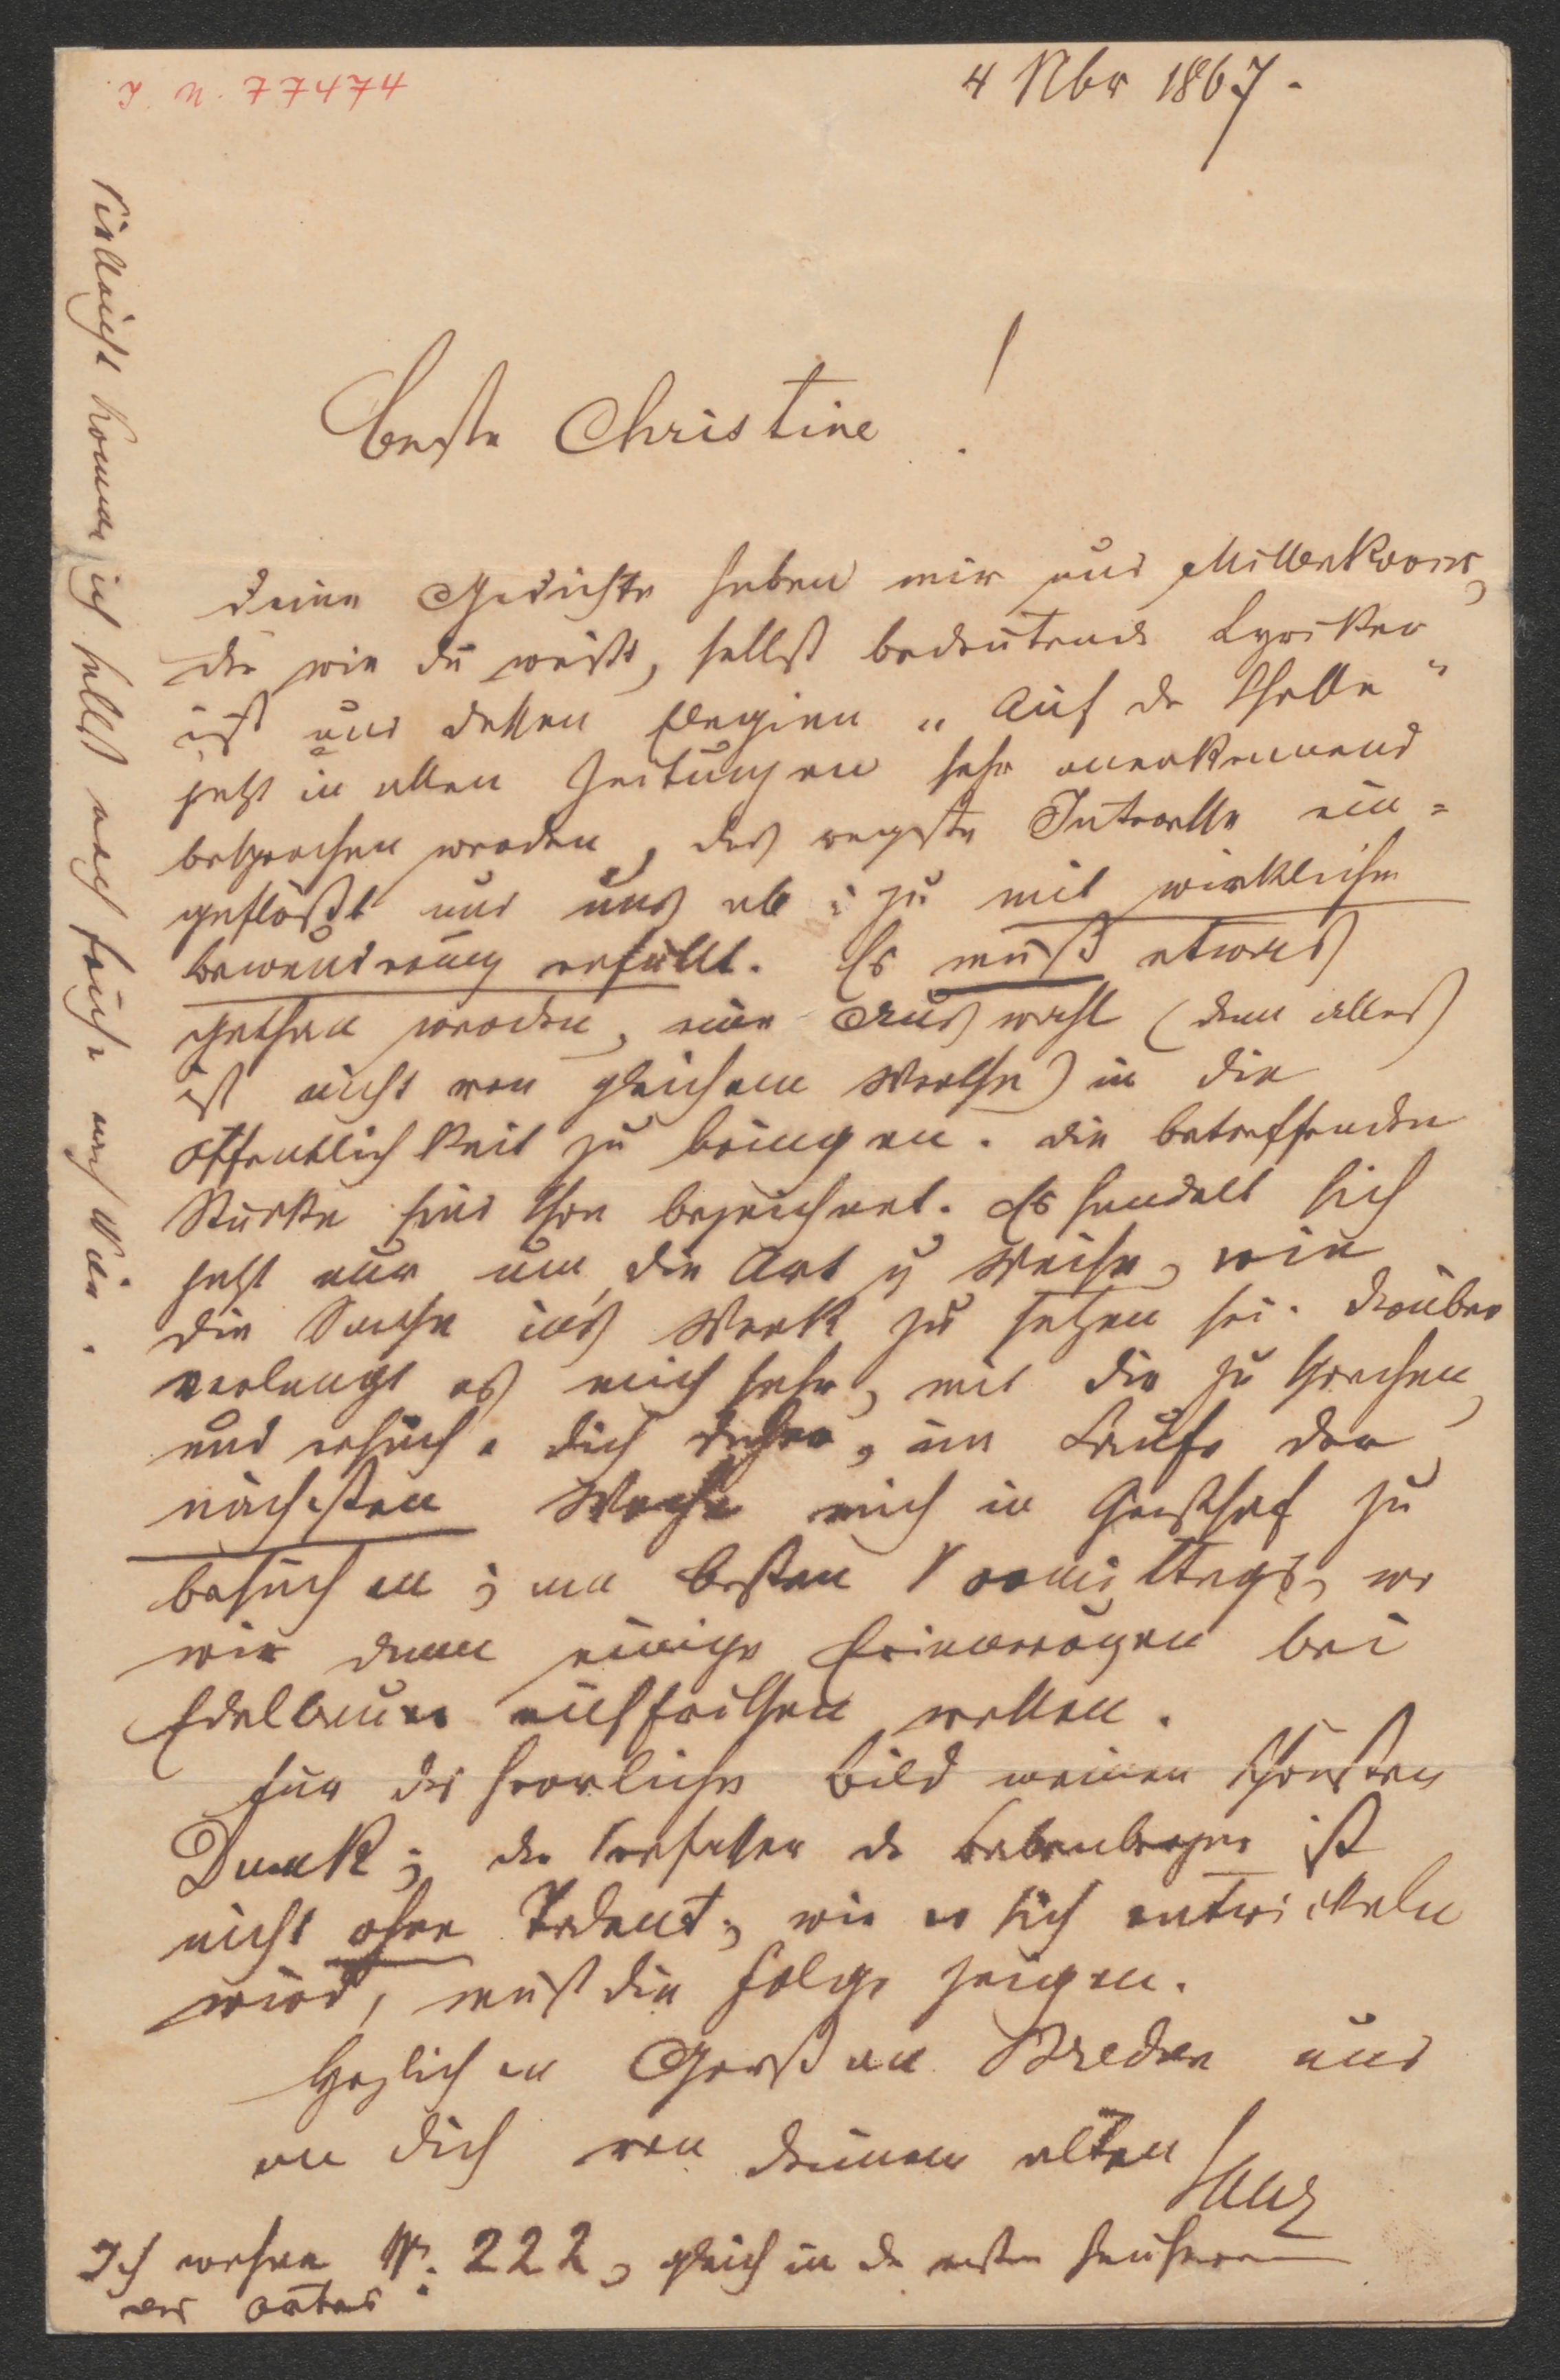 I. N. 77474
4 Nbr 1867.
Beste Christine!
Deine Gedichte haben mir und Millenkovics,
der wie du weißt, selbst bedeutende Lyriker
ist und dessen Elegien „Auf der Scholle"
jetzt in allen Zeitungen sehr anerkennend
besprochen werden, das regste Interesse ein=
geflößt und uns ab u zu mit wirklicher
Bewunderung erfüllt. Es muß etwas
gethan werden, eine Auswahl (denn alles
ist nicht von gleichem Werthe) in die
Öffentlichkeit zu bringen. Die betreffenden
Stücke sind schon bezeichnet. Es handelt sich
jetzt nur um die Art u Weise, wie
die Sache in's Werk zu setzen sei. Darüber
verlangt es mich sehr, mit dir zu sprechen,
und ersuche dich daher, im Laufe der
nächsten Woche mich in Gersthof zu
besuchen; am besten Vormittags, wo
wir dann einige Erinnerungen bei
Edelbauer auffrischen wollen.
Für das herrliche Bild meinen schönsten
Dank; der Verfasser der ist
nicht ohne Talent; wie er sich entwickeln
wird, muß die Folge zeigen.
Herzlichen Gruß an Breden und
an dich von deinem alten
Ich wohne Nr. 222, gleich in den ersten Häusern
des Ortes
Vielleicht komme ich selbst noch früher nach Wien.